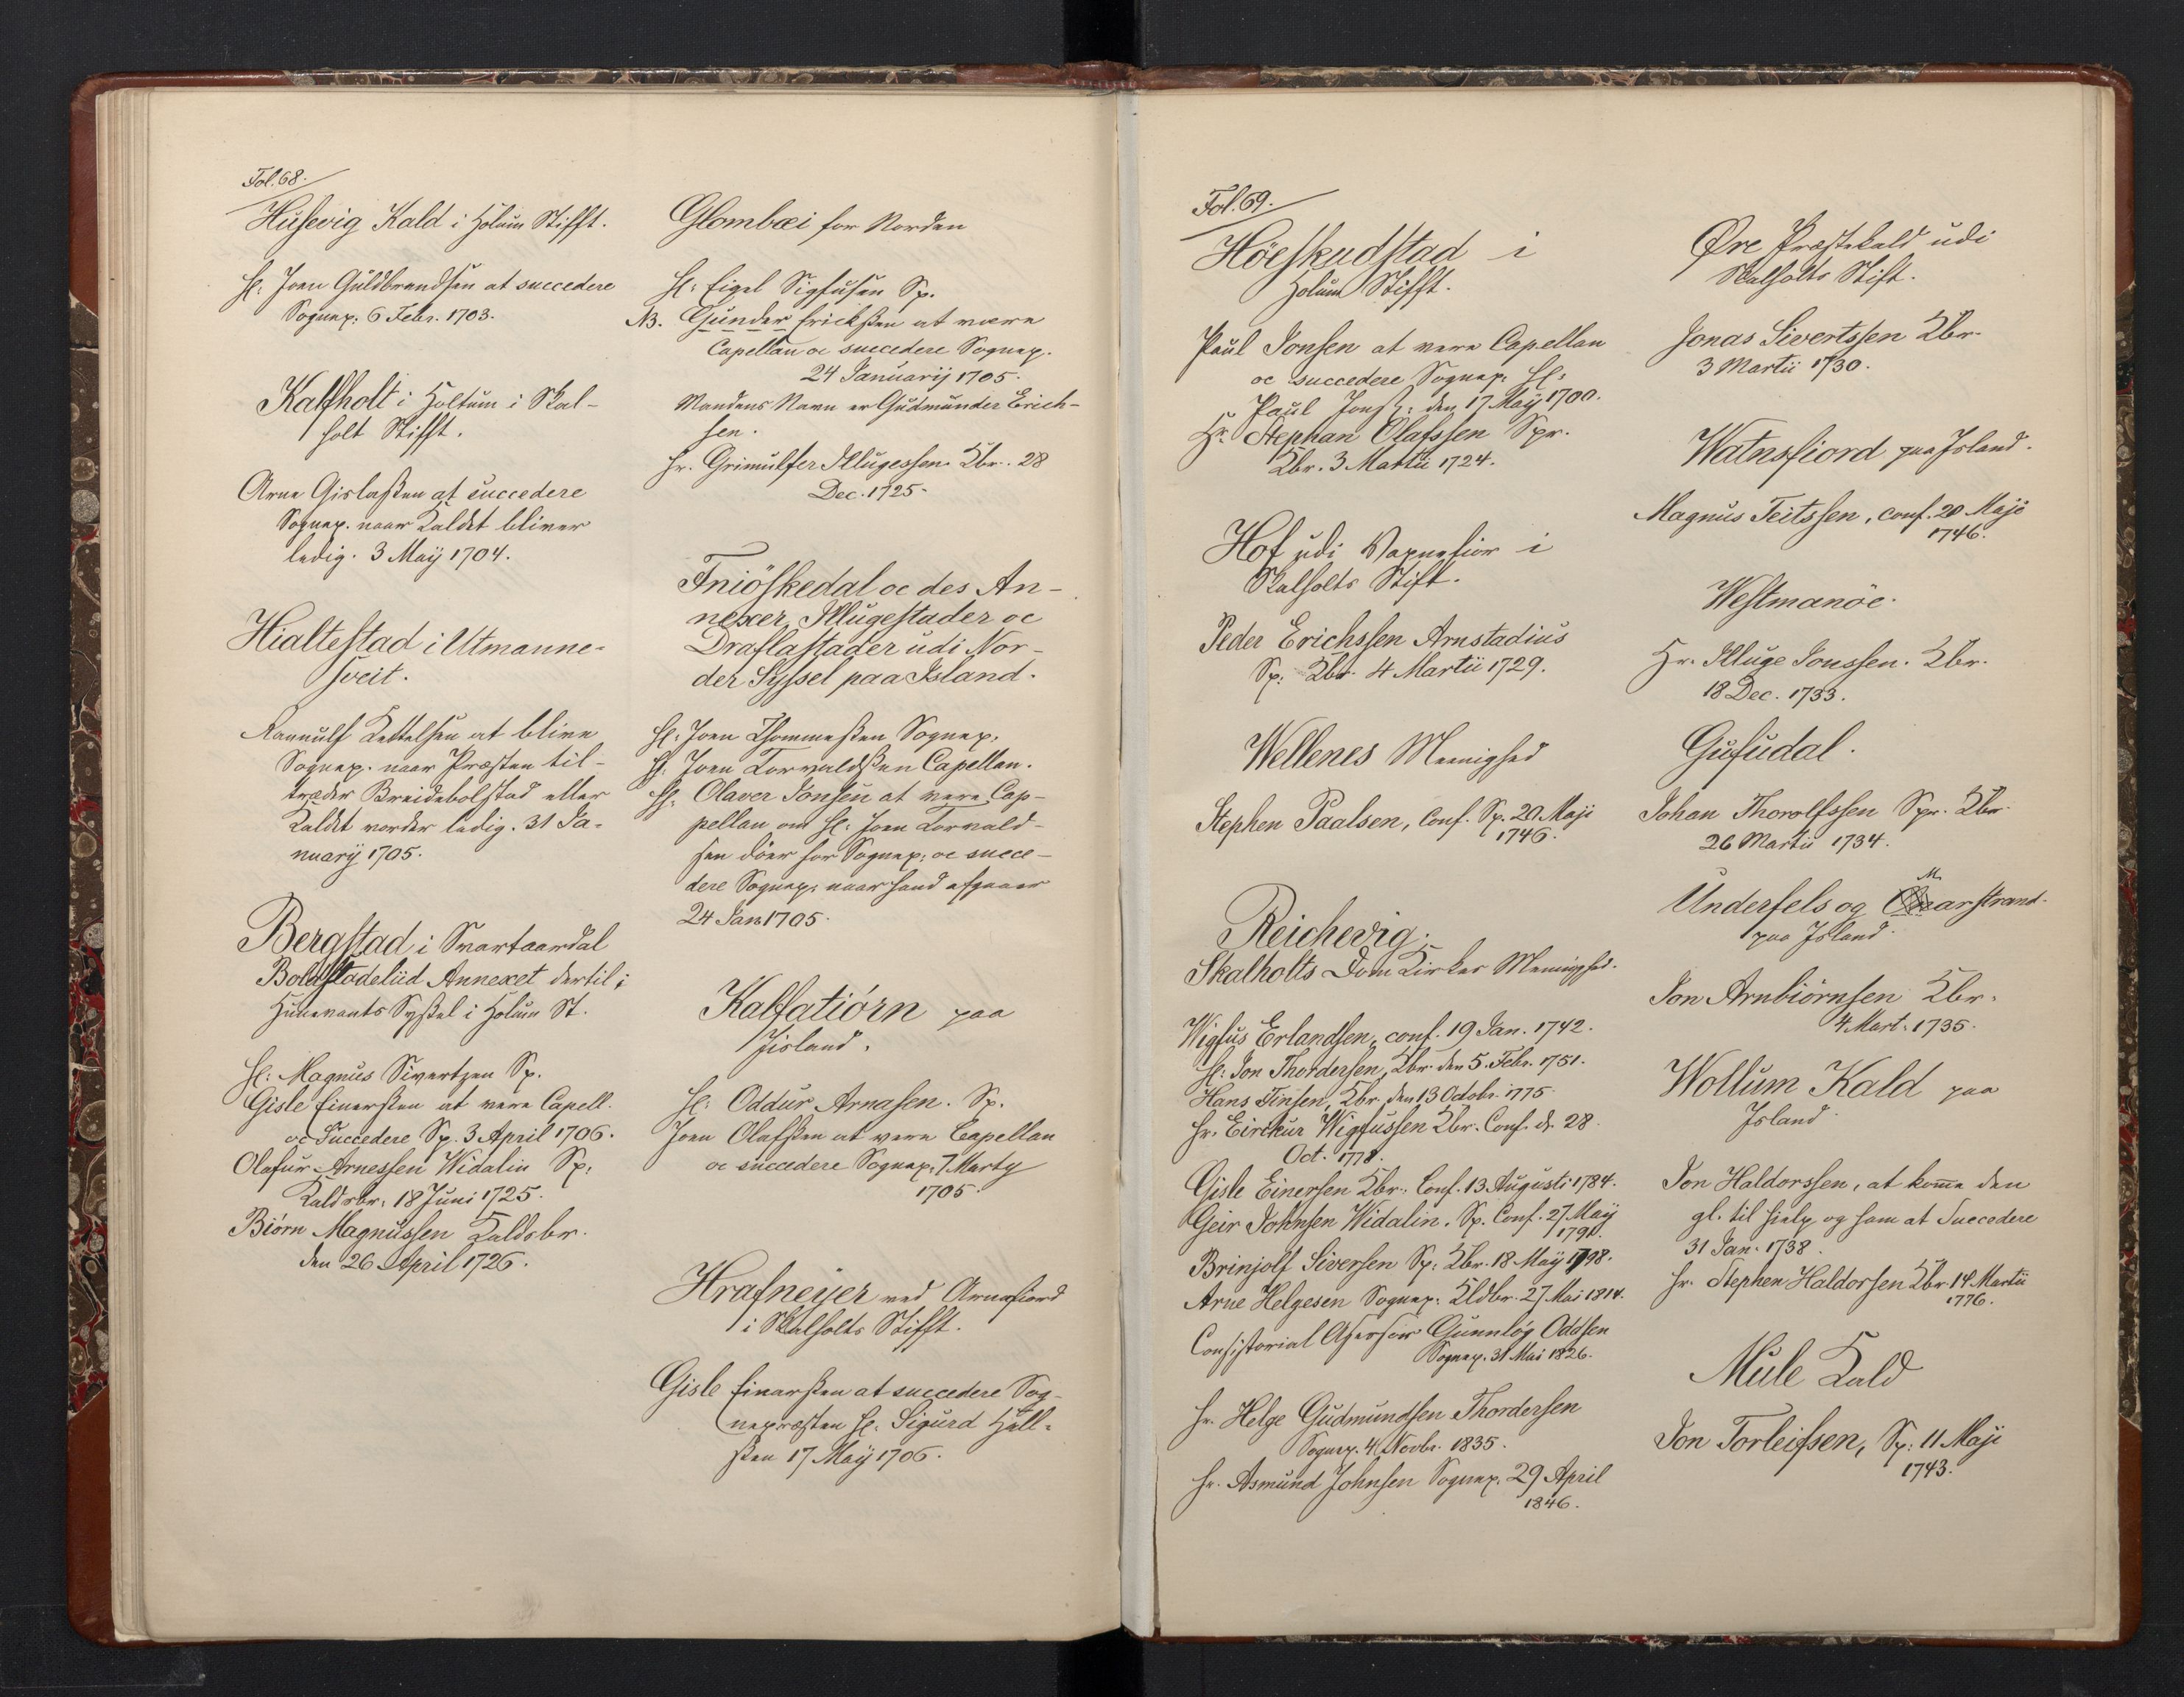 Fol. 68.
Husevig Kald i Holum Stifft.
H: Joen Guldbrandsen at succedere
Sognep: 6 Febr. 1703.
Kalfholt i Holtum i Skal-
holt Stifft.
Arne Gislaßen at succedere
Sognep. naar Kaldet bliver
ledig. 3 Maij 1704.
Hialtestad i Utmanne-
sveit.
Rannulf Kettelsen at blive
Sognep. naar Præsten til-
træder Breidebolstad eller
Kaldet vorder ledig. 31 Ja-
nuarij 1705.
Bergstad i Svartaardal
Bolastadeliid Annexet dertil i
Hunevants Syßel i Holum St.
H: Magnus Sivertzen Sp.
Gisle Einerßen at være Capell.
oc Succedere Sp. 3 April 1706.
Olafur Arnessen Widalin Sp:
Kaldsbr: 18 Juni 1725.
Biörn Magnussen Kaldsbr.
den 26 April 1726.
Glombæi for Norden
H: Eigel Sigfusen Sp.
NB. Gunder Erickßen at være
Capellan oc succedere Sognep.
24 Januarij 1705.
Mandens Navn er Gudmunder Erich-
sen.
Hr. Grimulfer Illugessen Kbr. 28
Dec. 1725.
Fniöskedal oc des An-
nexer, Illugestader oc
Draflastader udi Nor-
der Syssel paa Island.
H: Joen Thommeßen Sognep.
H: Joen Torvaldßen Capellan.
H: Olaver Jonsen at være Cap-
pellan om H: Joen Torvald-
sen döer for Sognep: oc succe-
dere Sognep: naar hand afgaaer
24 Jan 1705.
Kalfatiörn paa
Jisland.
H: Oddur Arnasen. Sp.
Joen Olafßen at være Capellan
oc succedere Sognep. 7 Marty
1705.
Hrafneyer ved Arnafiord
i Skalholts Stifft.
Gisle Einarßen at succedere Sog-
nepræsten H: Sigurd Hall-
ßen 17 Maij 1706.
Fol. 69.
Höeskudstad i
Holum Stifft.
Paul Jonsen at være Capellan
oc succedere Sognep: H:
Paul Jons: den 17 Maij 1700.
Hr. Stephan Olafssen Spr.
Kbr. 3 Martii 1724.
Hof udi Vapnefior i
Skalholts Stift.
Peder Erichssen Arnstadius
Sp: Kbr. 4 Martii 1729.
Wellenes Meenighed
Stephen Paalsen, Conf. Sp. 20. Maji
1746.
Reichevig.
Skalholts Dom Kirkes Meenighed.
Wigfus Erlandsen, conf. 19 Jan. 1742.
H: Jon Thordersen, Kbr. den 5. Febr. 1751.
Hans Finsen, Kbr. den 13 Octobr. 1775
Hr. Eirekur Wigfussen Kbr. Conf. d. 28.
Oct. 1778.
Gisle Einersen Kbr. Conf. 13. Augusti 1784.
Geir Johnsen Widalin. Sp. Conf. 27. Maij
1791.
Brinjolf Siversen Sp: Kbr. 18 Maij 1798.
Arne Helgesen Sognep: Kldbr. 27 Mai 1814.
Consistorial Assessor Gunnlög Oddsen
Sognep. 31 Mai 1826.
Hr. Helge Gudmundsen Thordersen
Sognep. 4 Novbr. 1835.
Hr. Asmund Johnsen Sognep. 29 April
1846.
Øre Præstekald udi
Skalholts Stift.
Jonas Sivertssen Kbr.
3 Martii 1730.
Watnsfiord paa Island.
Magnus Teitssen, conf. 20 Maji
1746.
Westmanöe.
Hr. Illuge Jonssen. Kbr.
18 Dec. 1733.
Gufudal.
Johan Thorolfssen Spr. Kbr.
26 Martii 1734.
Underfels og Marstrand
paa Island.
Jon Arnbiörnsen Kbr.
4 Mart: 1735.
Wollum Kald paa
Island.
Jon Haldorssen, at kome den
gl. til hielp og ham at Succedere
31 Jan. 1738.
Hr. Stephen Haldorsen Kbr. 14. Martii
1776.
Mule Kald
Jon Torleifsen, Sp: 11 Maji
1743.